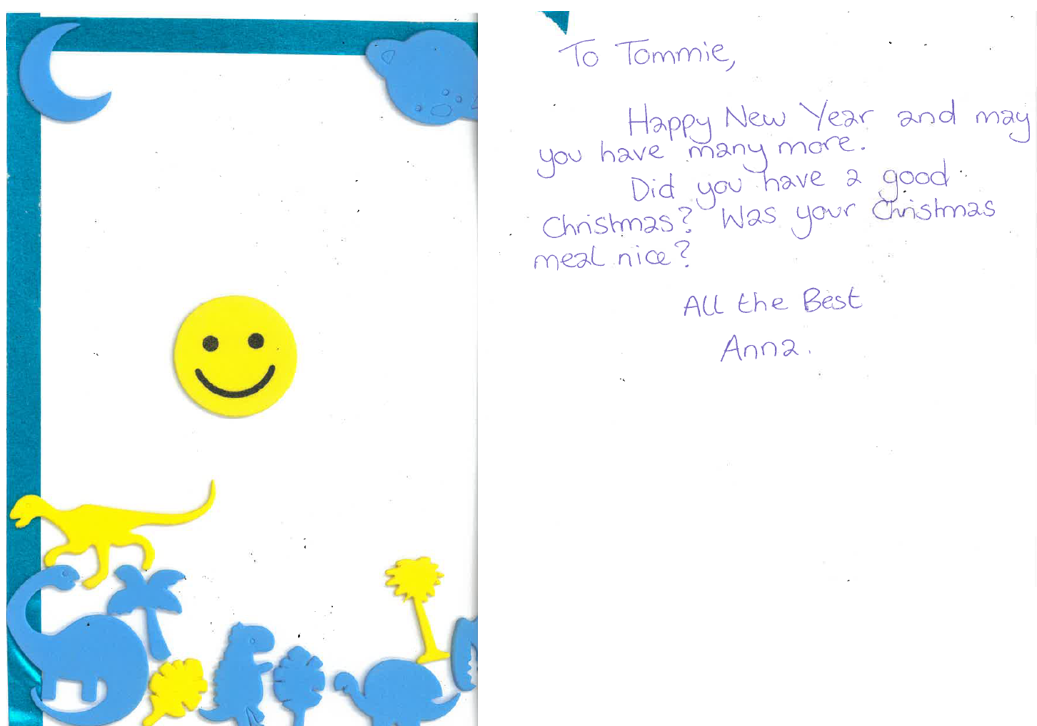 To Tommie,
Happy New Year and may
you have many more.
Did you have a good
Christmas? Was your Christmas
meal nice?
All the Best
Anna.